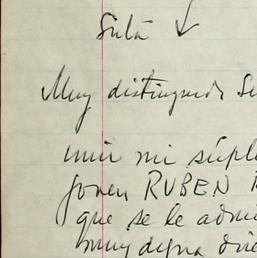 Sulá
Muy distinguido Se
unir mi súpl
joven RUBEN R
que se le admi
muy digna dire